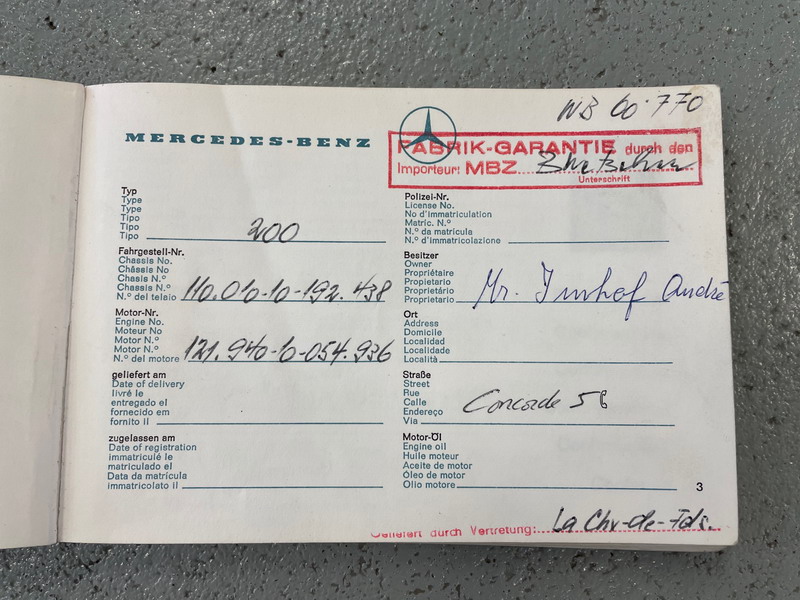 WB 60.770
MERCEDES-BENZ
FABRIK-GARANTIE durch den
Importeur: MBZ
Unterschrift
Typ
Type
Type
Tipo
Tipo
Tipo 200
Fahrgestell-Nr.
Chassis No.
Châssis No
Chasis N.º
Chassis N.º
N.º del telaio 110.010-10-192.438
Motor-Nr.
Engine No.
Moteur No
Motor N.º
Motor N.º
N.º del motore 121.940-10-054.936
geliefert am
Date of delivery
livré le
entregado el
fornecido em
fornito il
zugelassen am
Date of registration
immatriculé le
matriculado el
Data da matrícula
immatricolato il
Polizei-Nr.
License No.
No d'immatriculation
Matric. N.º
N.º da matrícula
N.º d'immatricolazione
Besitzer
Owner
Propriétaire
Propietario
Proprietário
Proprietario Mr. Imhof André
Ort
Address
Domicile
Localidad
Localidade
Località
Straße
Street
Rue
Calle
Endereço
Via Concorde 58
Motor-Öl
Engine oil
Huile moteur
Aceite de motor
Óleo de motor
Olio motore
3
Geliefert durch Vertretung: La Chx-de-Fds.